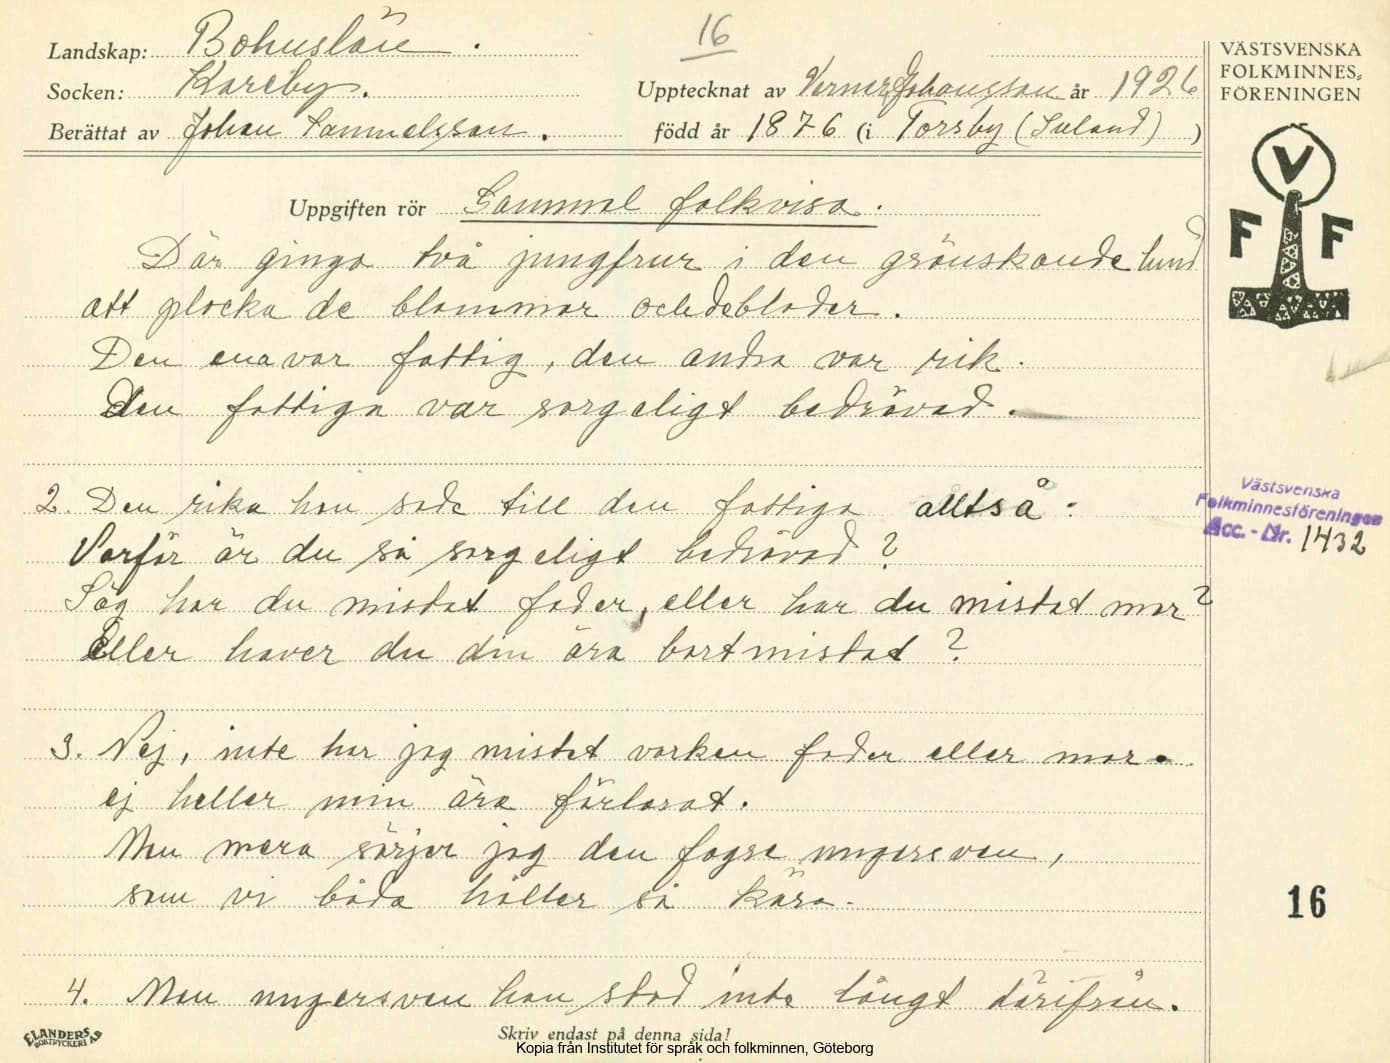 16
Landskap: Bohuslän.
Socken: Kareby.
Upptecknat av Verner Johansson år 1926
Berättat av Johan Samuelsson.
född år 1876 (i Torsby (Inland) )
VÄSTSVENSKA
FOLKMINNES-
FÖRENINGEN
V
F F
Uppgiften rör Gammal folkvisa.
Där gingo två jungfrur i den grönskande lund
att plocka de blommor och de blader.
Den ena var fattig, den andra var rik.
Den fattiga var sorgeligt bedrövad.
2. Den rika hon sade till den fattiga alltså:
Varför är du så sorgeligt bedrövad?
Säg har du mistat fader, eller har du mistat mor?
eller haver du din ära bortmistat?
Västsvenska
Folkminnesföreningen
Acc. - Nr. 1432
3. Nej, inte har jag mistat varken fader eller mor.
ej heller min ära förlorat.
Men mera sörjer jag den fagre ungersven,
som vi båda håller så kära.
16
4. Men ungersven han stod inte långt därifrån.
ELANDERS
BOKTRYCKERI AB
Skriv endast på denna sida!
Kopia från Institutet för språk och folkminnen, Göteborg